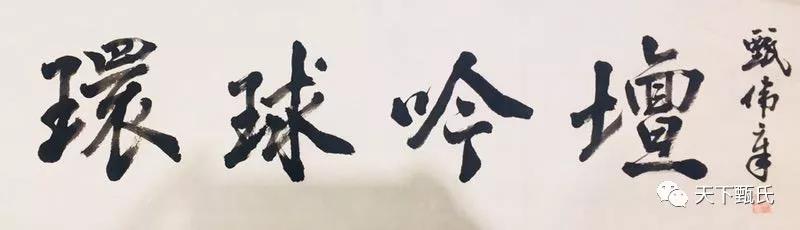 環球吟壇
甄伟章
天下甄氏